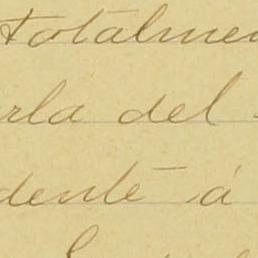 totalmen
rla del
dente á